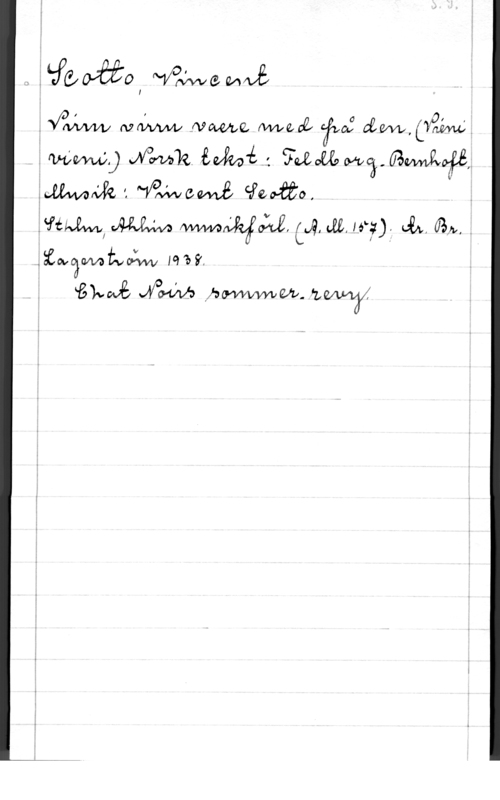 S. S.
Scotto, Vincent
Vinn vinn vaere med på den. (Vieni
vieni.) Norsk tekst: Feldborg-Bernhoft.
Musik: Vincent Scotto.
Sthlm, Ahlins musikförl. (A. M. 157). Ar. Br.
Lagerström 1938.
Chat Noirs sommer-revy.